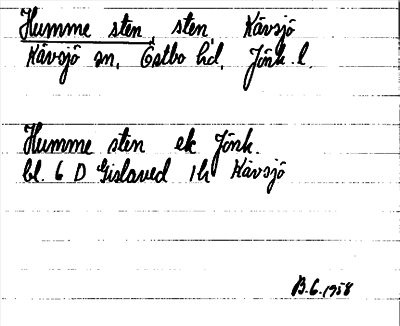 Humme sten, sten, Kävsjö
Kävsjö sn, Östbo hd, Jönk. l.
Humme sten ek Jönk.
bl. 6 D Gislaved 1h Kävsjö
B.G. 1958